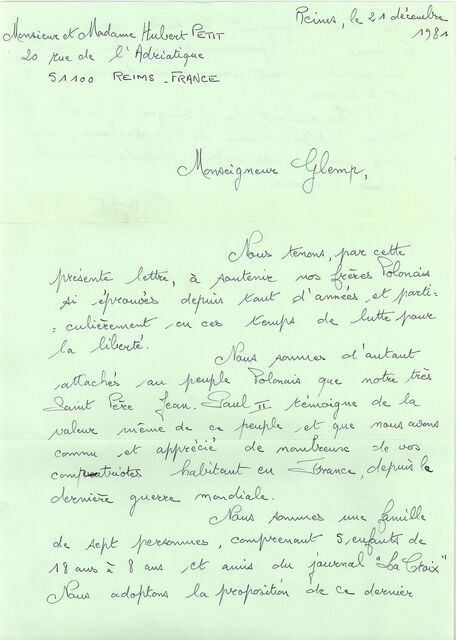 Reims, le 21 décembre
1981
Monsieur et Madame Hubert PETIT
20 rue de l'Adriatique
51100 REIMS - FRANCE
Monseigneur Glemp,
Nous tenons, par cette
présente lettre, à soutenir nos frères Polonais
si éprouvés depuis tant d'années et parti-
-culièrement en ces temps de lutte pour
la liberté.
Nous sommes d'autant
attachés au peuple Polonais que notre très
Saint Père Jean-Paul II témoigne de la
valeur même de ce peuple et que nous avons
connu et apprécié de nombreux de vos
compatriotes habitant en France, depuis la
dernière guerre mondiale.
Nous sommes une famille
de sept personnes, comprenant 5 enfants de
18 ans à 8 ans et amis du journal "La Croix"
Nous adoptons la proposition de ce dernier